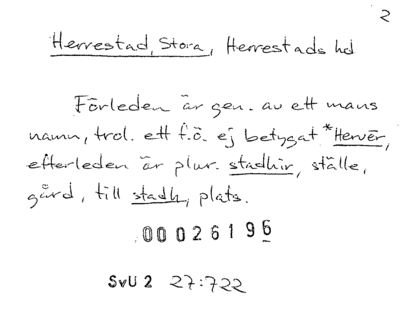 2
Herrestad, Stora, Herrestads hd
Förleden är gen. av ett mans
namn, trol. ett f.ö. ej betygat *Hervēr,
efterleden är plur. stadhir, ställe,
gård, till stadh, plats.
00026196
SvU 2 27:722